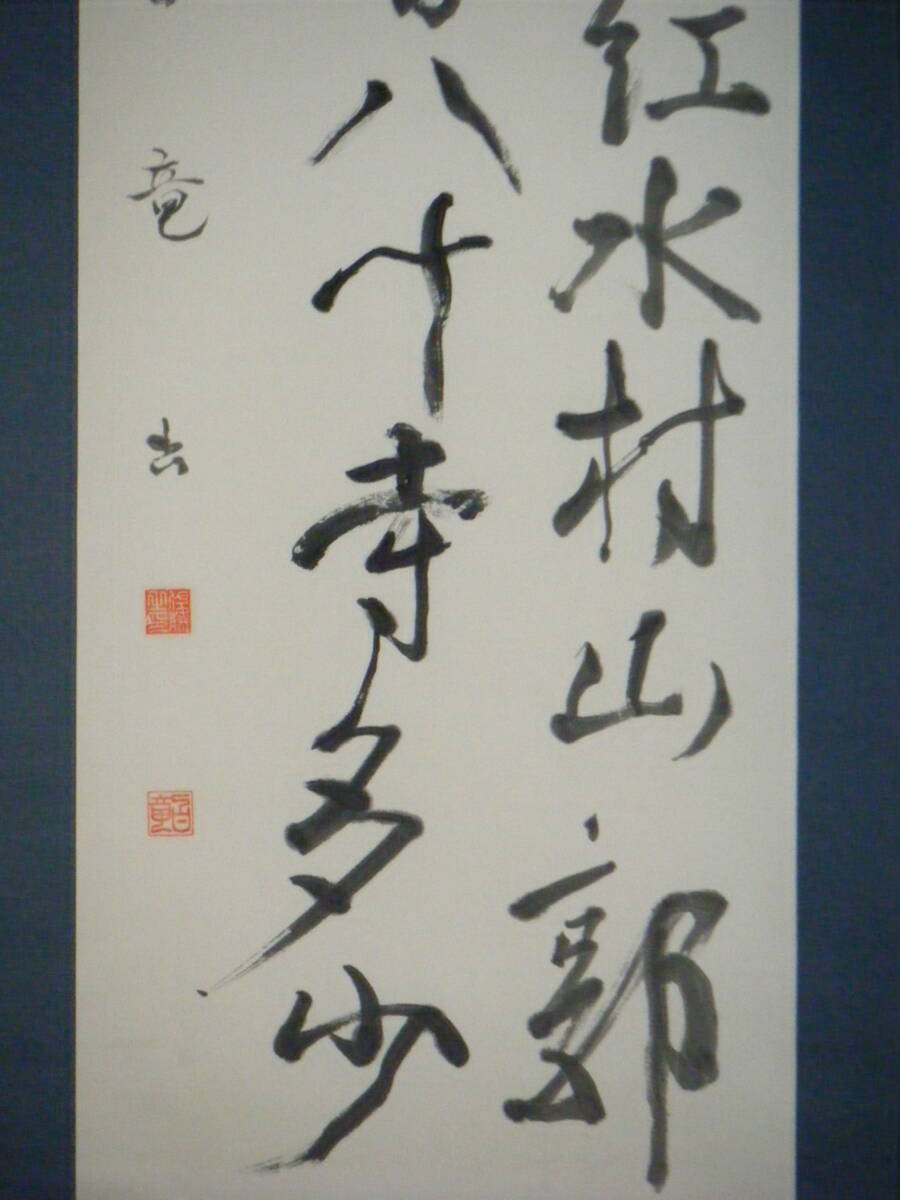 紅水村山郭
百八十寺多少
竜